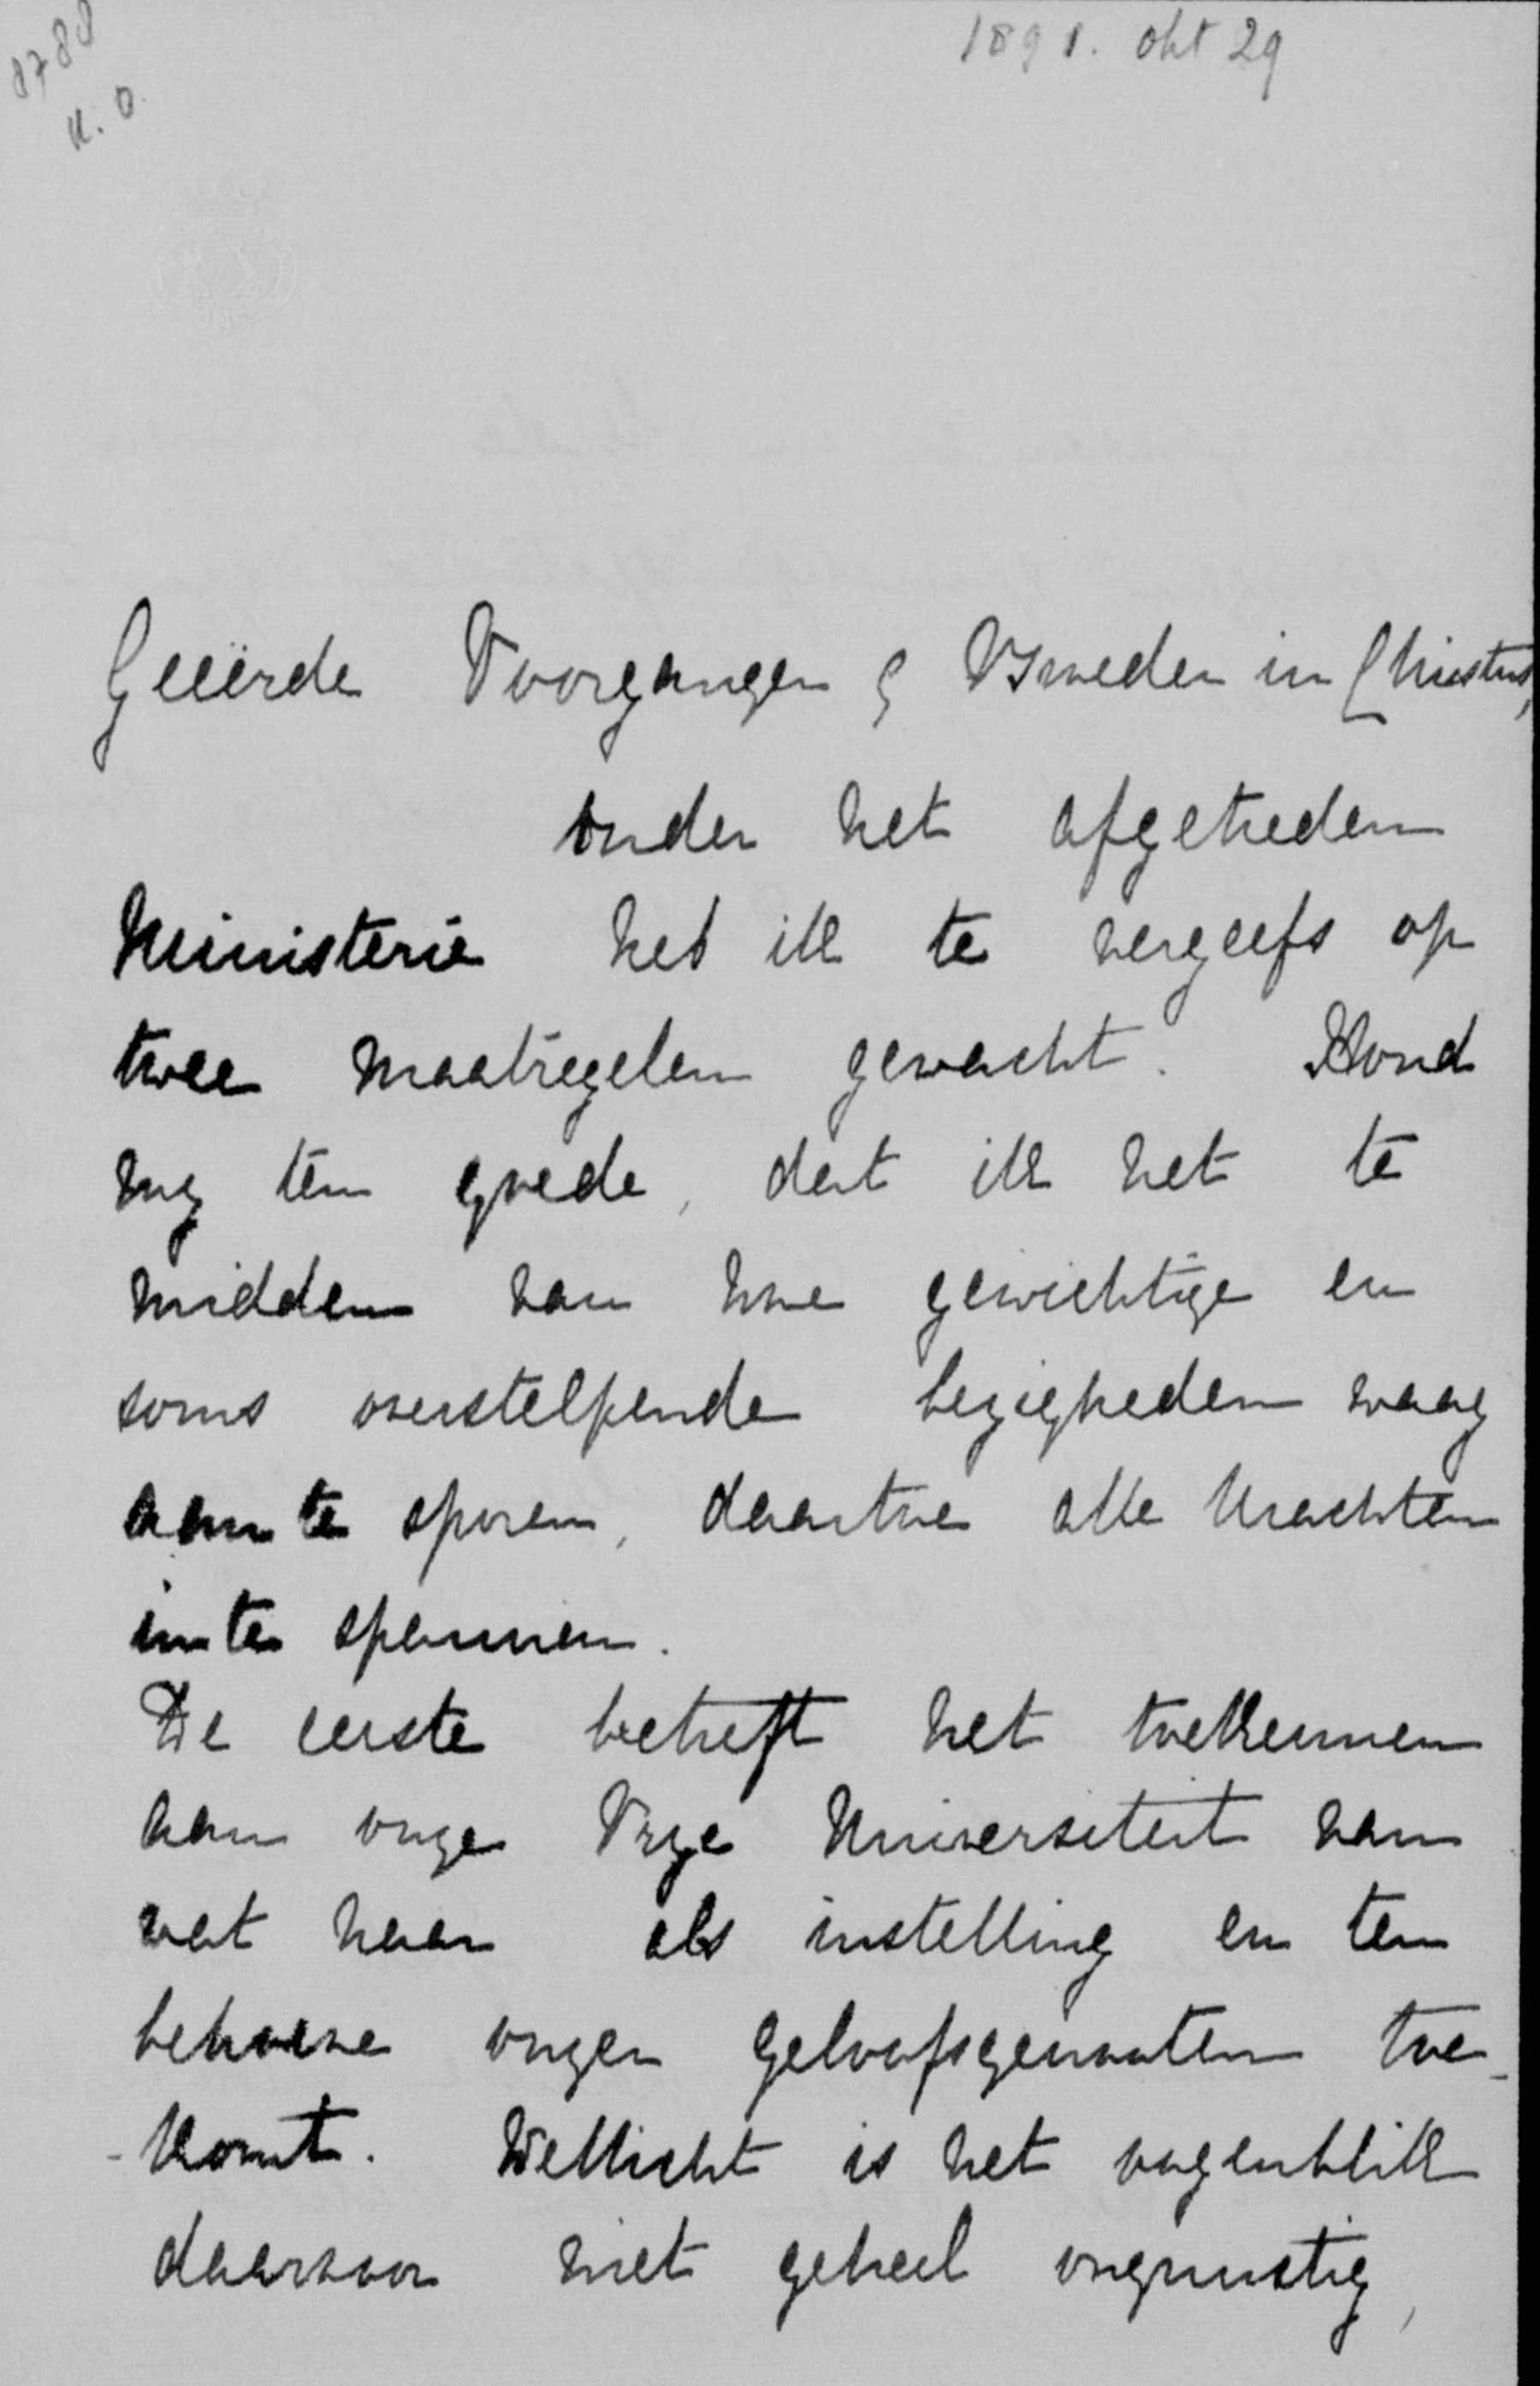 8788
K. O.
1891. okt 29
Geëerde Voorganger & Broeder in Christus,
Onder het afgetreden
Ministerie heb ik te vergeefs op
twee maatregelen gewacht. Houd
my ten goede, dat ik het te
midden van uwe gewichtige en
soms overstelpende bezigheden waag
aan te sporen, daartoe alle krachten
in te spannen.
De eerste betreft het toekennen
aan onze Vrye Universiteit van
wat haar als instelling en ten
behoeve onzer geloofsgenooten toe-
-komt. Wellicht is het oogenblik
daarvoor niet geheel ongunstig,